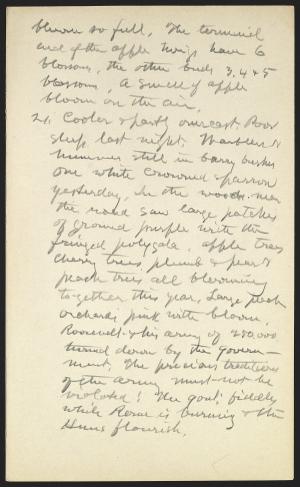 blown so full. The terminal
end of the apple twigs have 6
blossoms, the other buds 3, 4 & 5
blossoms, a smell of apple
bloom on the air.
21, Cooler & partly overcast. Poor
sleep last night. Warblers &
hummers still in berry bushes
one white crowned sparrow
yesterday, In the woods near
the road saw large patches
of ground purple with the
fringed polygala. apple trees
cherry trees, plumb & pear &
peach trees all blooming
together this year, Large peach
orchards pink with bloom.
Roosevelt & his army of 250,000
turned down by the govern-
ment. The precious traditions
of the army must not be
violated! The gov't fiddles
while Rome is burning & the
Huns flourish.